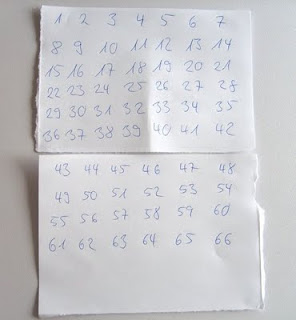 1 2 3 4 5 6 7
8 9 10 11 12 13 14
15 16 17 18 19 20 21
22 23 24 25 26 27 28
29 30 31 32 33 34 35
36 37 38 39 40 41 42
43 44 45 46 47 48
49 50 51 52 53 54
55 56 57 58 59 60
61 62 63 64 65 66